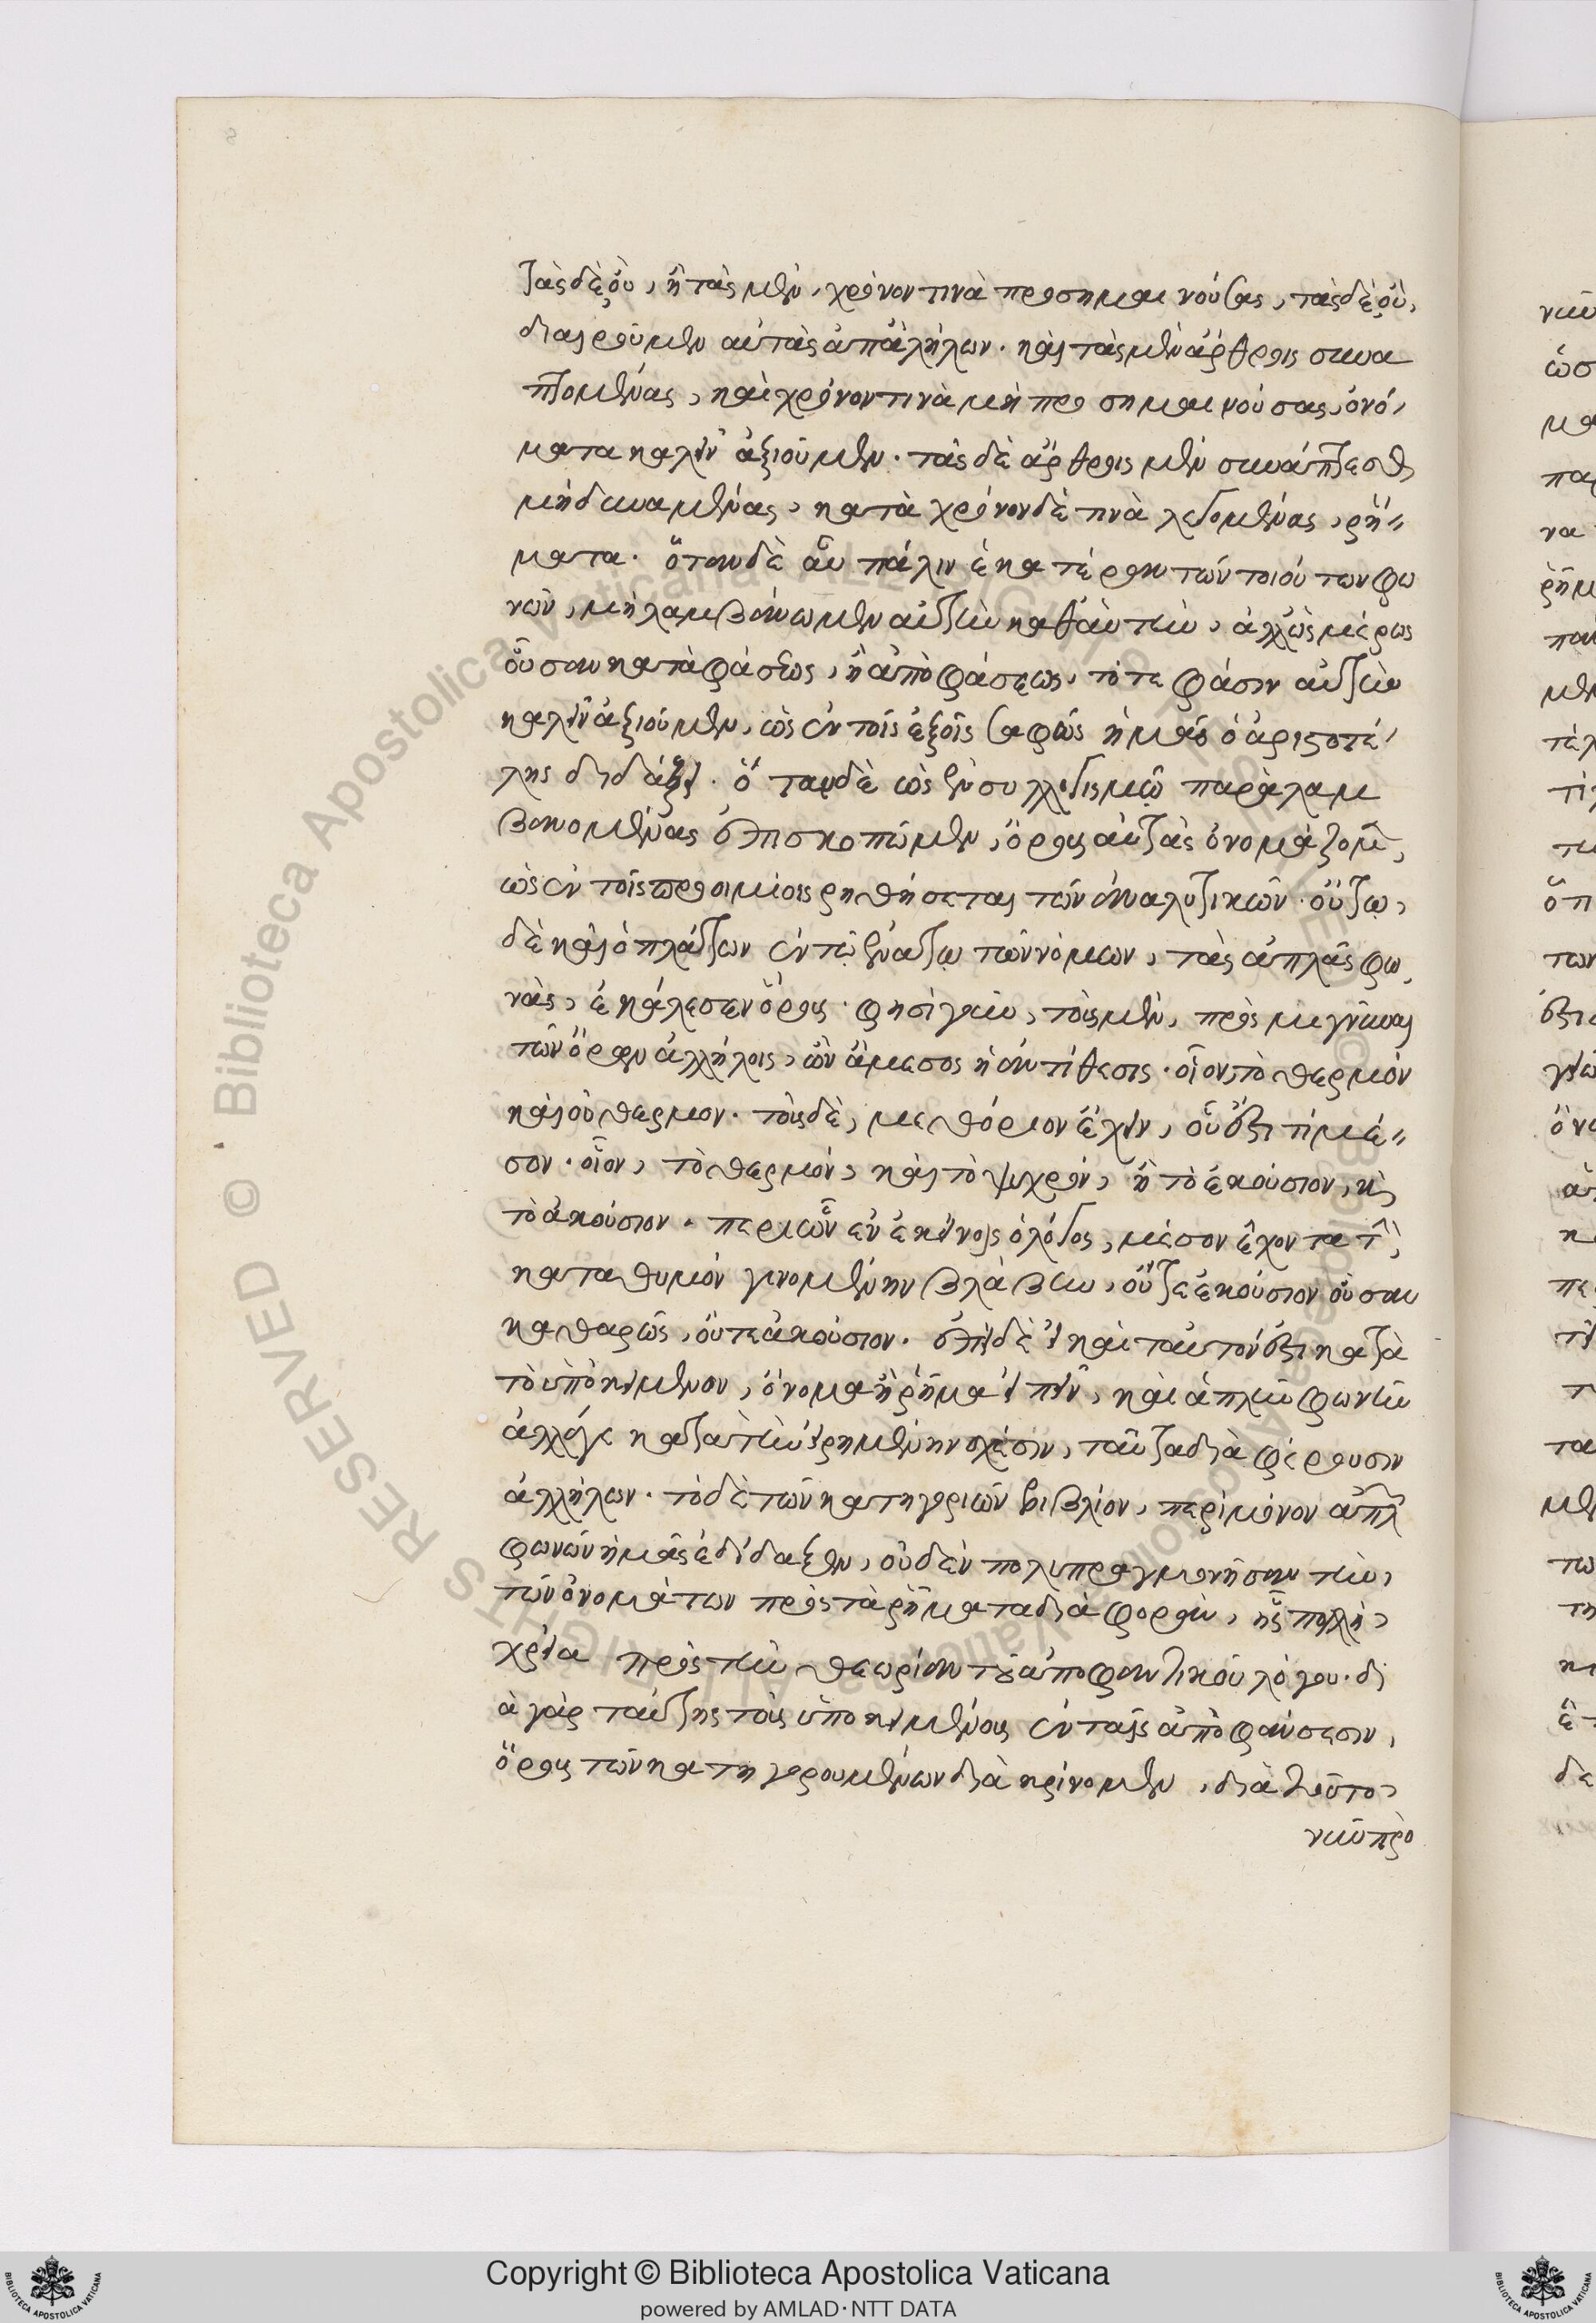 τὰς δὲ οὔ, ἢ τὰς μὲν, χρόνον τινὰ προσημαινούσας, τὰς δὲ οὔ,
διαιροῦμεν αὐτὰς ἀπ' ἀλλήλων. καὶ τὰς μὲν ἄρθροις συνα
πτομένας, καὶ χρόνον τινὰ μὴ προσημαινούσας, ὀνό-
ματα καλεῖν ἀξιοῦμεν. τὰς δὲ ἄρθροις μὲν συνάπτεσθαι
μὴ δυναμένας, κατὰ χρόνον δέ τινα λεγομένας, ῥή-
ματα. ὅταν δὲ αὖ πάλιν ἑκατέραν τῶν τοιούτων φω
νῶν, μὴ λαμβάνωμεν αὐτὴν καθ' αὑτὴν, ἀλλ' ὡς μέρος
οὖσαν καταφάσεως, ἢ ἀποφάσεως, τότε φάσιν αὐτὴν
καλεῖν ἀξιοῦμεν, ὡς ἐν τοῖς ἑξῆς σαφῶς ἡμᾶς ὁ ἀριστοτέ-
λης διδάξει. ὅταν δὲ ὡς ἐν συλλογισμῷ παραλαμ
βανομένας ἐπισκοπῶμεν, ὅρους αὐτὰς ὀνομάζομεν,
ὡς ἐν τοῖς προοιμίοις ῥηθήσεται τῶν ἀναλυτικῶν. οὕτω,
δὲ καὶ ὁ πλάτων ἐν τῷ ἐνάτῳ τῶν νόμων, τὰς ἁπλᾶς φω
νὰς, ἐκάλεσεν ὅρους. φησὶ γὰρ, τοὺς μὲν, προσμιγνῦναι
τῶν ὅρων ἀλλήλοις, ὧν ἄμεσος ἡ ἀντίθεσις. οἷον, τὸ θερμὸν
καὶ οὐ θερμον. τοὺς δὲ, μεθόριον ἔχειν, οὗ ἐστι τι μέ-
σον. οἷον, τὸ θερμὸν, καὶ τὸ ψυχρὸν, ἢ τὸ ἑκούσιον, καὶ
τὸ ἀκούσιον. περὶ ὧν ἐν ἐκείνοις ὁ λόγος, μέσον ἔχοντα τὴν,
κατα θυμὸν γινομένην βλάβην, οὔτε ἑκούσιον οὖσαν
καθαρῶς, οὔτε ἀκούσιον. ἐπεὶ δὲ εἰ καὶ ταυτόν ἐστι κατὰ
τὸ ὑποκείμενον, ὄνομα ἢ ῥῆμα εἰπεῖν, καὶ ἁπλῆν φωνὴν
ἀλλά γε κατὰ τὴν εἰρημένην σχέσιν, ταῦτα διαφέρουσιν
ἀλλήλων. τὸ δὲ τῶν κατηγοριῶν βιβλίον, περὶ μόνον ἁπλῶν
φωνῶν ἡμᾶς ἐδίδαξεν, οὐδὲν πολυπραγμονῆσαν τὴν,
τῶν ὀνομάτων πρὸς τὰ ῥήματα διαφορὰν, ἧς πολλὴ,
χρεία πρὸς τὴν θεωρίαν τοῦ ἀποφαντικοῦ λόγου. δι
ὰ γὰρ ταύτης τοὺς ὑποκειμένους ἐν ταῖς ἀποφάνσεσιν,
ὅρους τῶν κατηγορουμένων διακρίνομεν, διὰ τοῦτο,
νῦν προ